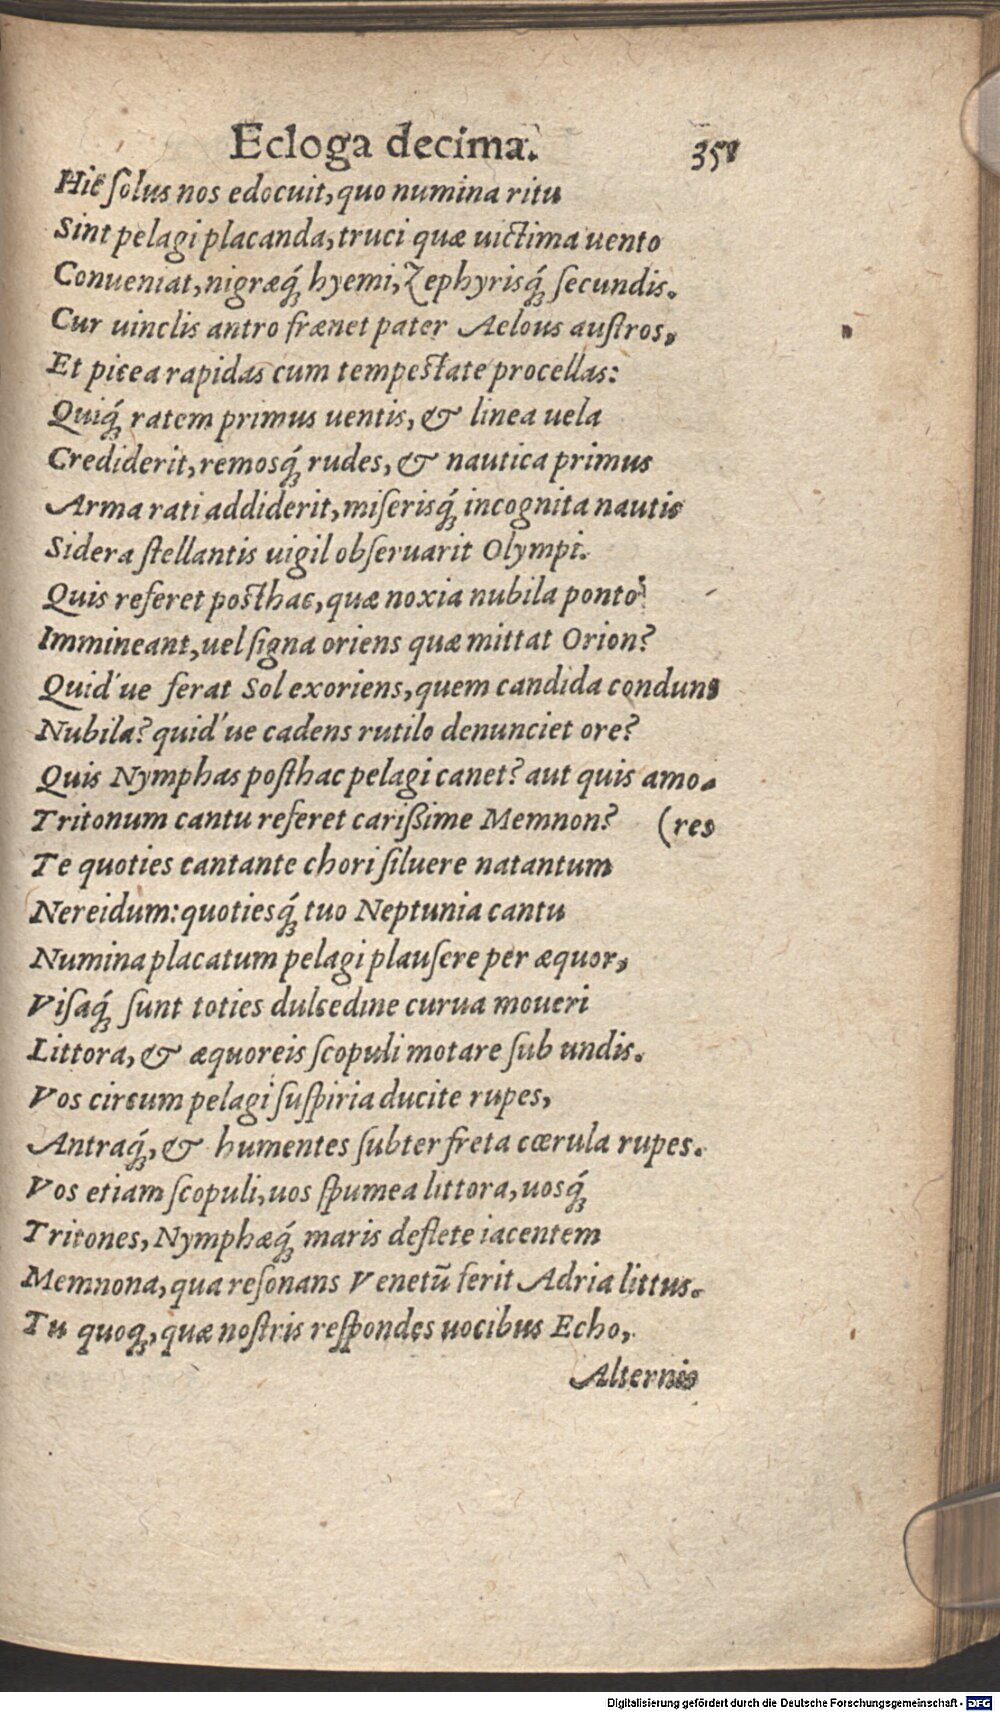 Ecloga decima. 351
Hic ſolus nos edocuit, quo numina ritu
Sint pelagi placanda, truci quæ uictima uento
Conueniat, nigræq́; hyemi, Zephyrisq́; ſecundis.
Cur uinclis antro frænet pater Aelous auſtros,
Et picea rapidas cum tempeſtate procellas:
Quiq́; ratem primus uentis, & linea uela
Crediderit, remosq́; rudes, & nautica primus
Arma rati addiderit, miſerisq́; incognita nautis
Sidera ſtellantis uigil obſeruarit Olympi.
Quis referet poſthac, quæ noxia nubila ponto
Immineant, uel ſigna oriens quæ mittat Orion?
Quid'ue ferat Sol exoriens, quem candida condunt
Nubila? quid'ue cadens rutilo denunciet ore?
Quis Nymphas poſthac pelagi canet? aut quis amo-
Tritonum cantu referet cariſſime Memnon? (res
Te quoties cantante chori ſiluere natantum
Nereidum: quotiesq́; tuo Neptunia cantu
Numina placatum pelagi plauſere per æquor,
Viſaq́; ſunt toties dulcedine curua moueri
Littora, & æquoreis ſcopuli motare ſub undis.
Vos circum pelagi ſuſpiria ducite rupes,
Antraq́;, & humentes ſubter freta cœrula rupes.
Vos etiam ſcopuli, uos ſpumea littora, uosq́;
Tritones, Nymphæq́; maris deflete iacentem
Memnona, qua reſonans Venetū ferit Adria littus.
Tu quoq;, quæ noſtris reſpondes uocibus Echo,
Alternis
Digitalisierung gefördert durch die Deutsche Forschungsgemeinschaft - DFG